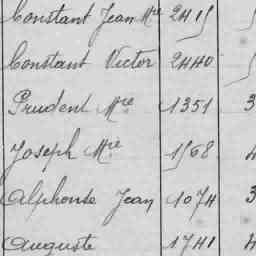 Constant Jean Mie 2415
Constant Victor 2440
Prudent Mie 1351 3
Joseph Mie 1568 4
Alphonse Jean 1074 3
Auguste 1741 4